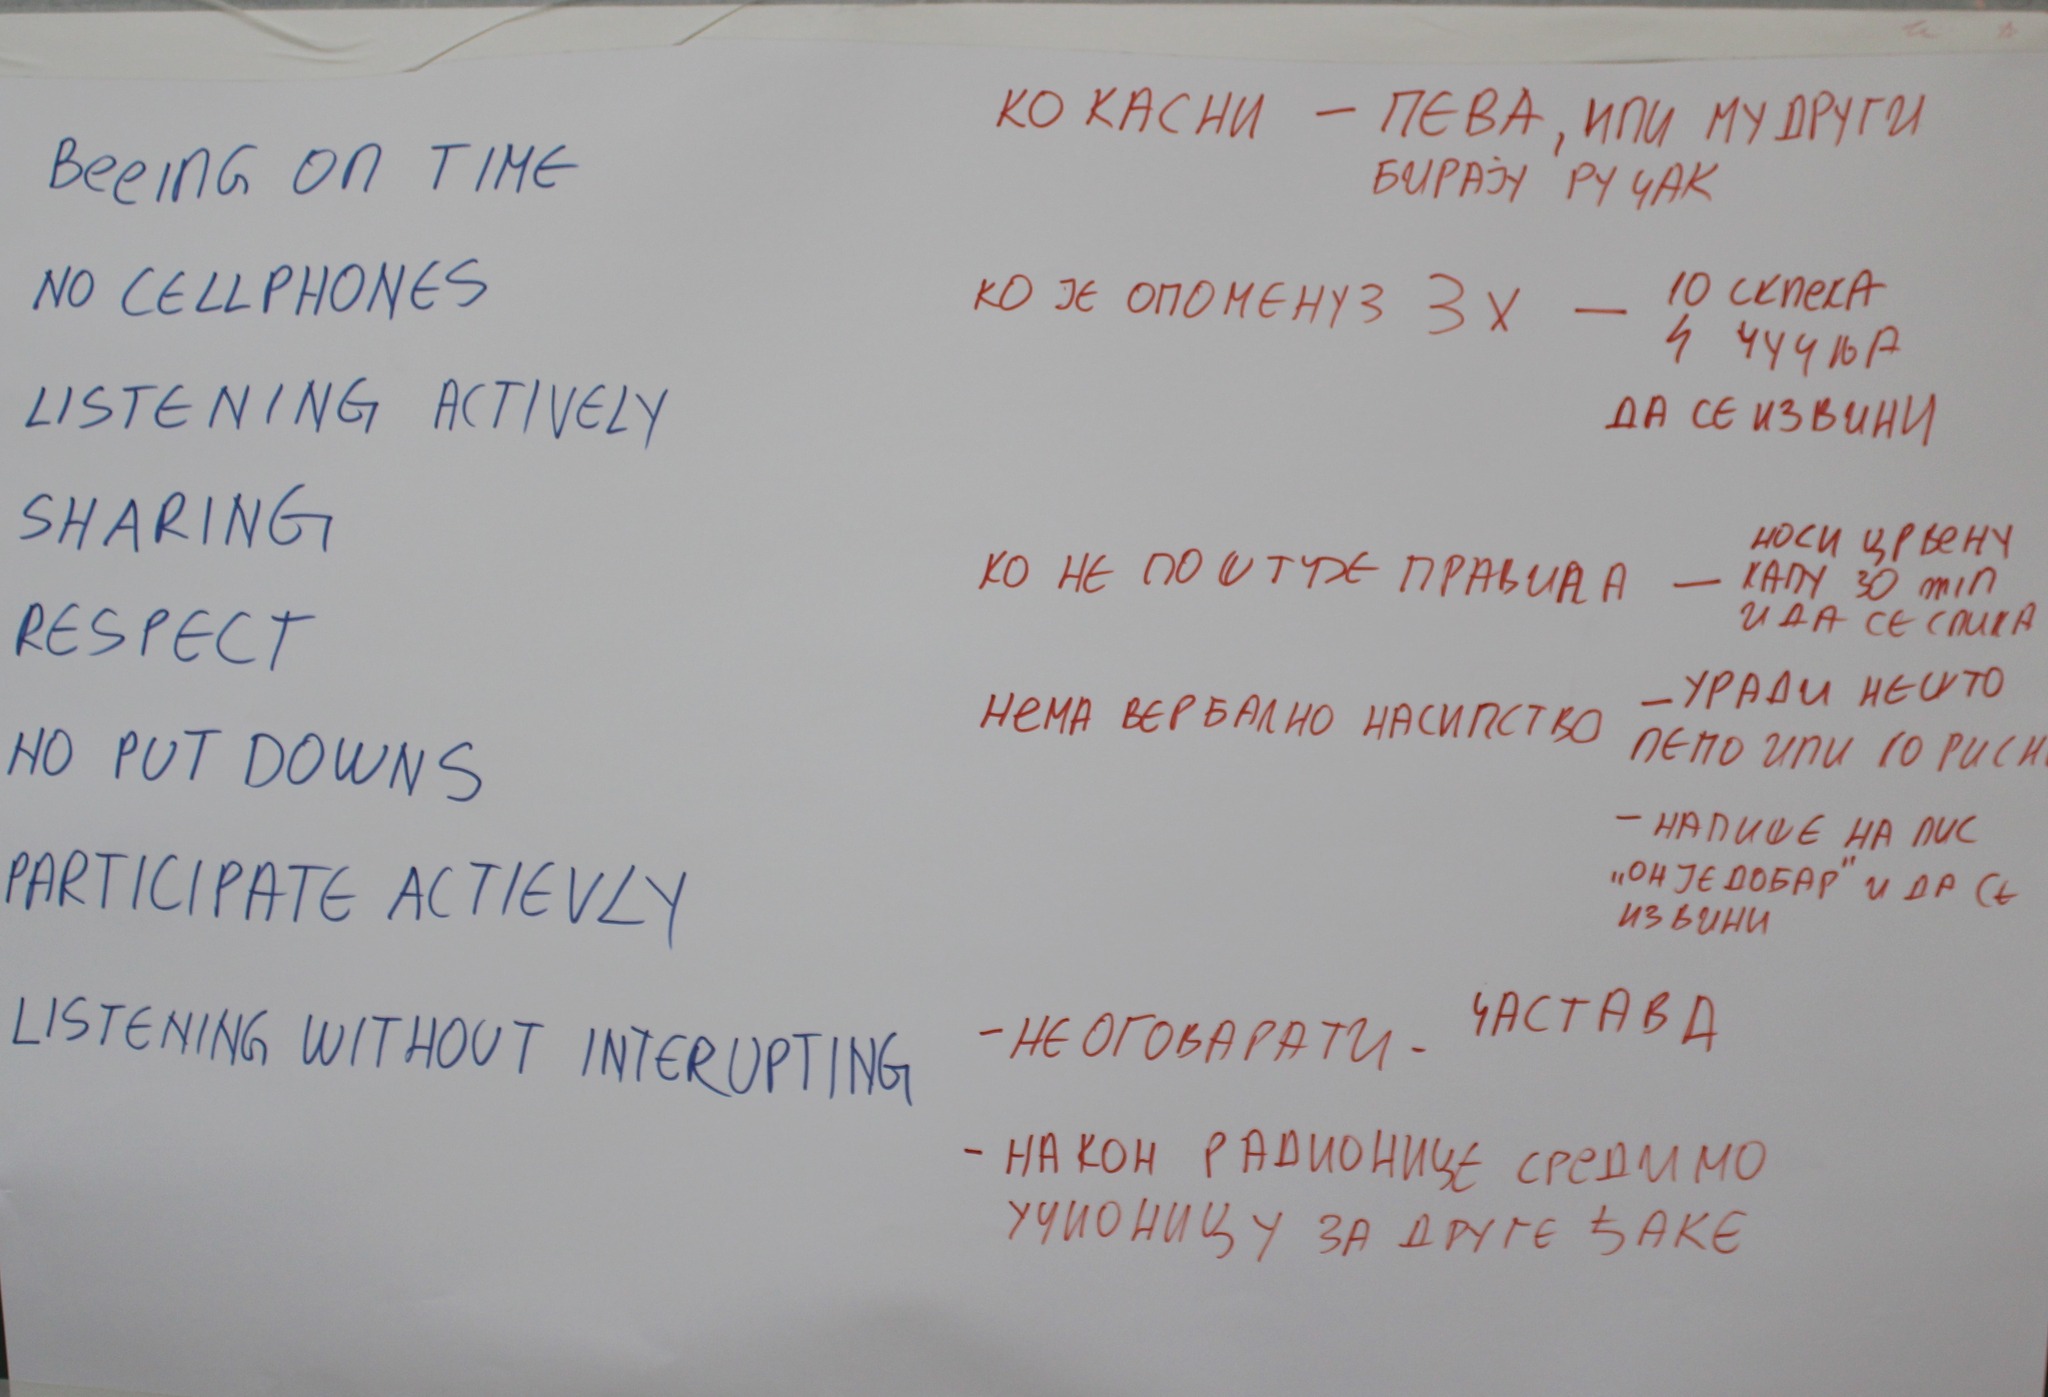 BeeING ON TIME
NO CELLPHONES
LISTENING ACTIVELY
SHARING
RESPECT
NO PUT DOWNS
PARTICIPATE ACTIEVLY
LISTENING WITHOUT INTERUPTING
КО КАСНИ – ПЕВА, ИЛИ МУ ДРУГИ
БИРАЈУ РУЧАК
КО ЈЕ ОПОМЕНУЗ 3 X – 10 СКЛЕКА
Ч ЧУЧЊА
ДА СЕ ИЗВИНИ
КО НЕ ПОШТУЈЕ ПРАВИЛА – НОСИ ЦРВЕНУ
КАПУ 30 min
И ДА СЕ СЛИКА
НЕМА ВЕРБАЛНО НАСИЛСТВО – УРАДИ НЕШТО
ЛЕПО ИЛИ ГО РИСНИ
– НАПИШЕ НА ЛИС
„ОН ЈЕ ДОБАР" И ДА СЕ
ИЗВИНИ
- НЕ ОГОВАРАТИ - ЧАСТАВА Д
- НАКОН РАДИОНИЦЕ СРЕДИМО
УЧИОНИЦУ ЗА ДРУГЕ ЂАКЕ